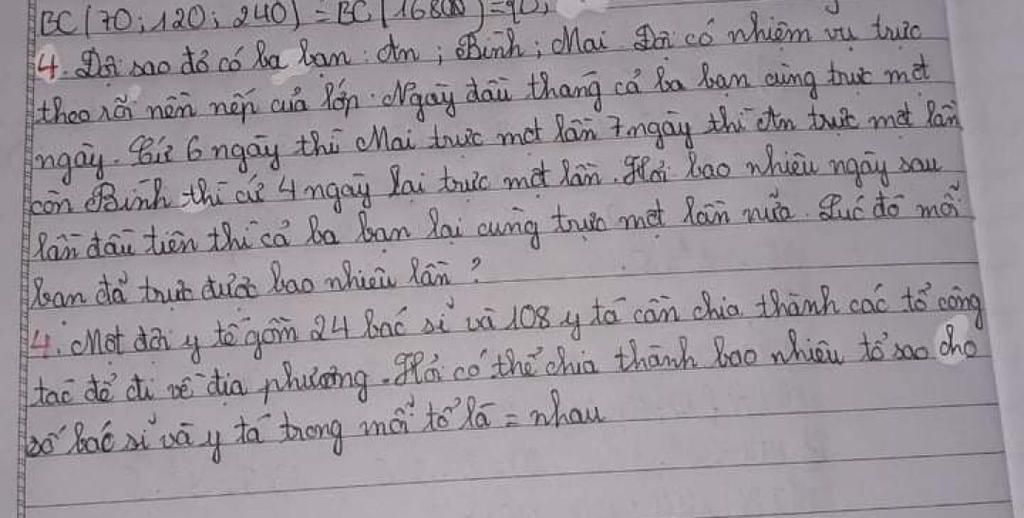 BC(70; 120; 240) = BC(16800) =
4. Đội sao đỏ có ba bạn: An; Bình; Mai. Đội có nhiệm vụ trực
theo rõi nền nếp của lớp. Ngày đầu tháng cả ba bạn cùng trực một
ngày. Cứ 6 ngày thì Mai trực một lần 7 ngày thì An trực một lần
còn Bình thì cứ 4 ngày lại trực một lần. Hỏi bao nhiêu ngày sau
lần đầu tiên thì cả ba bạn lại cùng trực một lần nữa. Lúc đó mỗi
bạn đã trực được bao nhiêu lần?
4. Một đội y tế gồm 24 bác sĩ và 108 y tá cần chia thành các tổ công
tác để đi về địa phương. Hỏi có thể chia thành bao nhiêu tổ sao cho
số bác sĩ và y tá trong mỗi tổ là = nhau